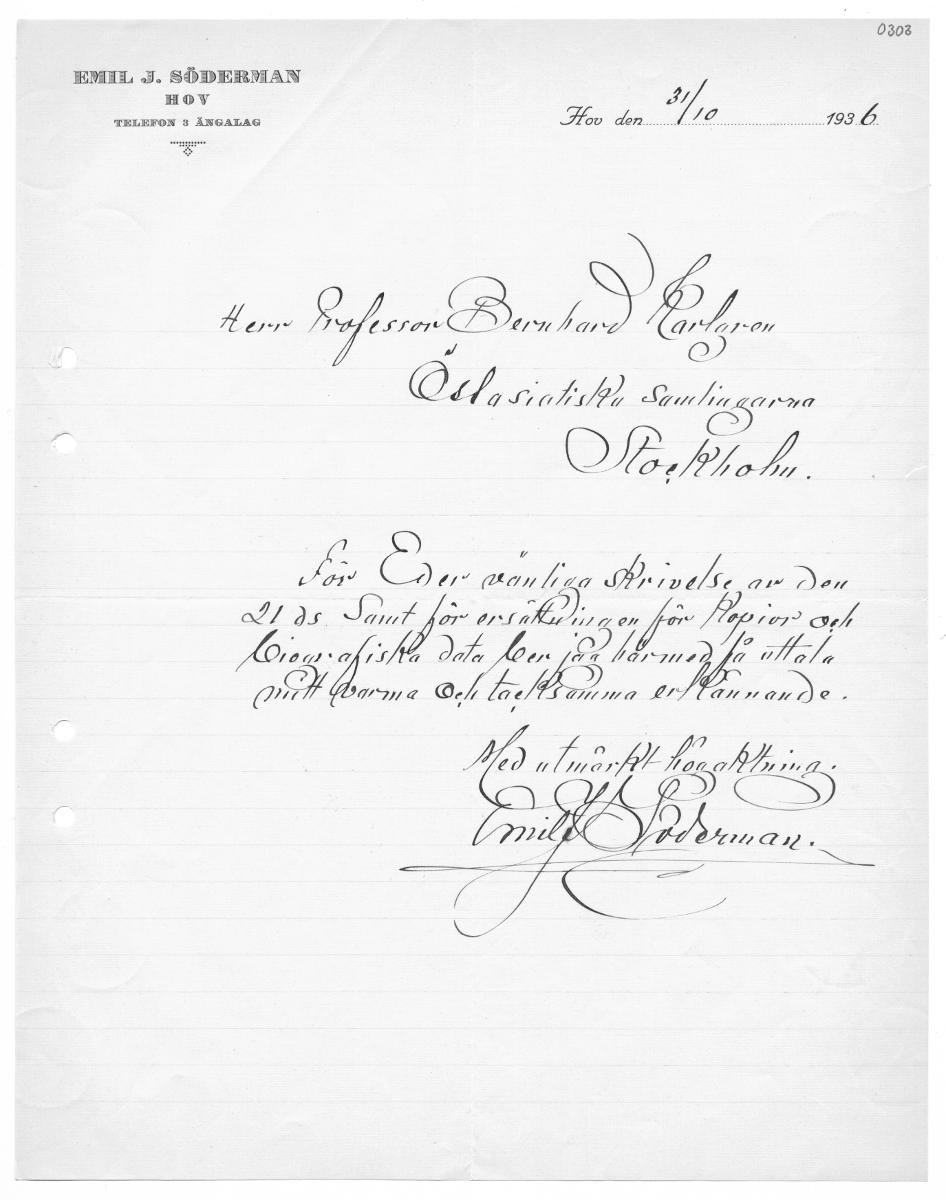 0303
EMIL J. SÖDERMAN
HOV
TELEFON 3 ÄNGALAG
Hov den 31/10 1936
Herr Professor Bernhard Karlgren
Östasiatiska Samlingarna
Stockholm.
För Eder vänliga skrivelse av den
21 ds Samt för ersättningen för Kopior och
biografiska data ber jag härmed få uttala
mitt varma och tacksamma erkännande.
Med utmärkt högaktning.
Emil J Söderman.